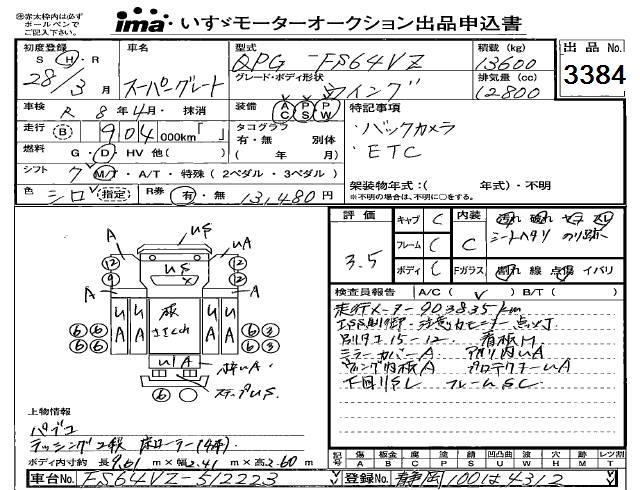 ※赤太枠内は必ず
ボールペンで
ご記入下さい。
ima いすゞモーターオークション出品申込書
初度登録 車名 型式 積載 (kg) 出品 No.
S・H・R
28/3月 スーパーグレート QPG-FS64VZ 13600
グレード・ボディ形状 排気量 (cc)
ウイング 12800
3384
車検 R 8年4月・抹消 装備 AC PS PW 特記事項
走行 (B) 904,000km「 」 タコグラフ
有・無 別体
( 年 月)
・バックカメラ
・ETC
燃料 G・D・HV 他( )
シフト 7 M/T・A/T・特殊 (2ペダル・3ペダル)
架装物年式:( 年式)・不明
※不明の場合は、不明に○をする。
色 シロ (指定) R券 有・無 13,480円
評価 キャブ C 内装 汚れ 破れ
3.5 フレーム C C シートヘタリ のり跡
ボディ C Fガラス 割れ 線 点傷 イバリ
検査員報告 A/C( ) B/T( )
走行メーター903835km
ミラーカバーA
下回りSL フレームSC
A US UA
12 12
9 9
A US A
UA UA 板 UA UA
6 6 6 3
UA A
ステップUS
6
上物情報
パブコ
ラッシング2段 床ローラー(4本)
ボディ内寸約 長9.61m×幅2.41m×高2.60m
記号 傷 板金 腐 塗 錆 凹 凸凹 波 穴 跡 レツ割
A B C P S U W H M T
車台No. FS64VZ-512223 登録No. 静岡100は4312